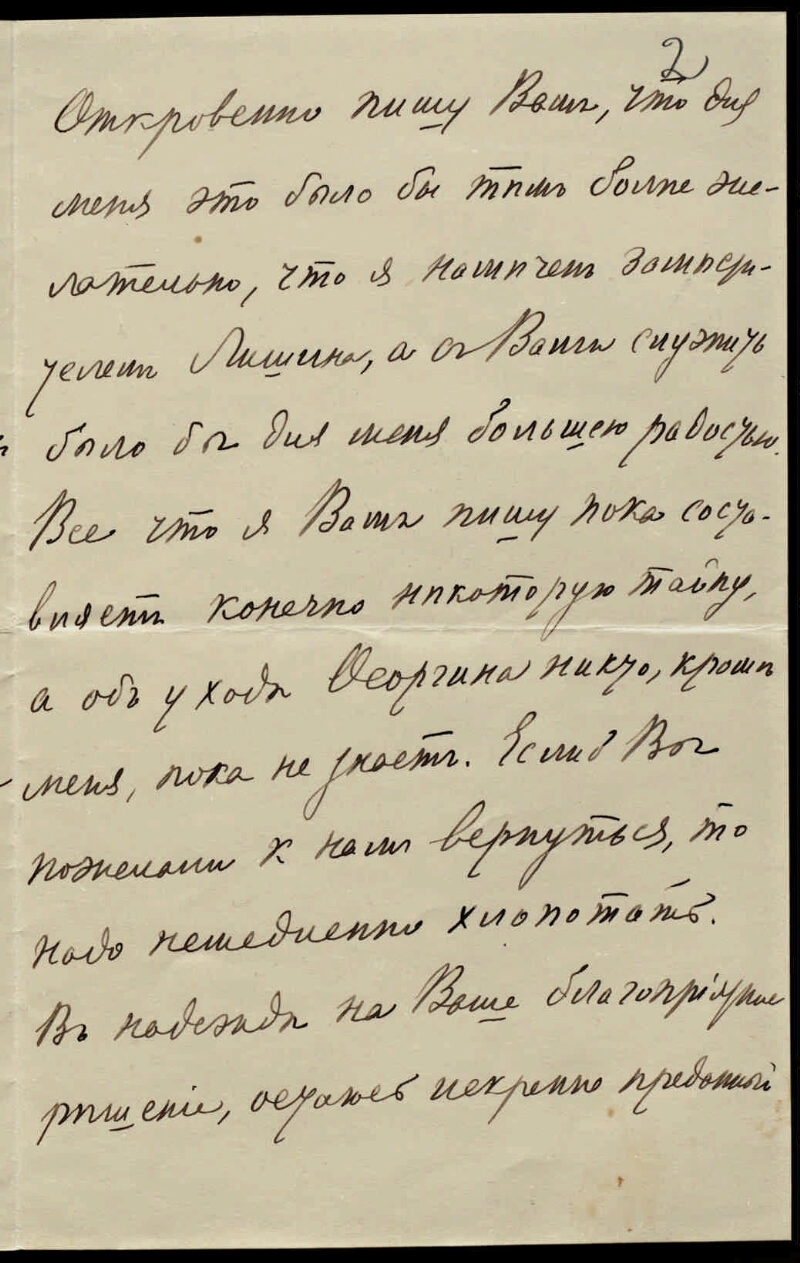 2
Откровенно пишу Вамъ, что для
меня это было бы тѣмъ болѣе же-
лательно, что я намѣченъ замѣсти-
телемъ Лишина, а съ Вами служить
было бы для меня большею радостью.
Все что я Вамъ пишу пока соста-
вляетъ конечно нѣкоторую тайну,
а объ уходѣ Георгина никто, кромѣ
меня, пока не знаетъ. Еслиб Вы
пожелали к намъ вернуться, то
надо немедленно хлопотать.
Въ надеждѣ на Ваше благопріятное
рѣшеніе, остаюсь искренно преданный